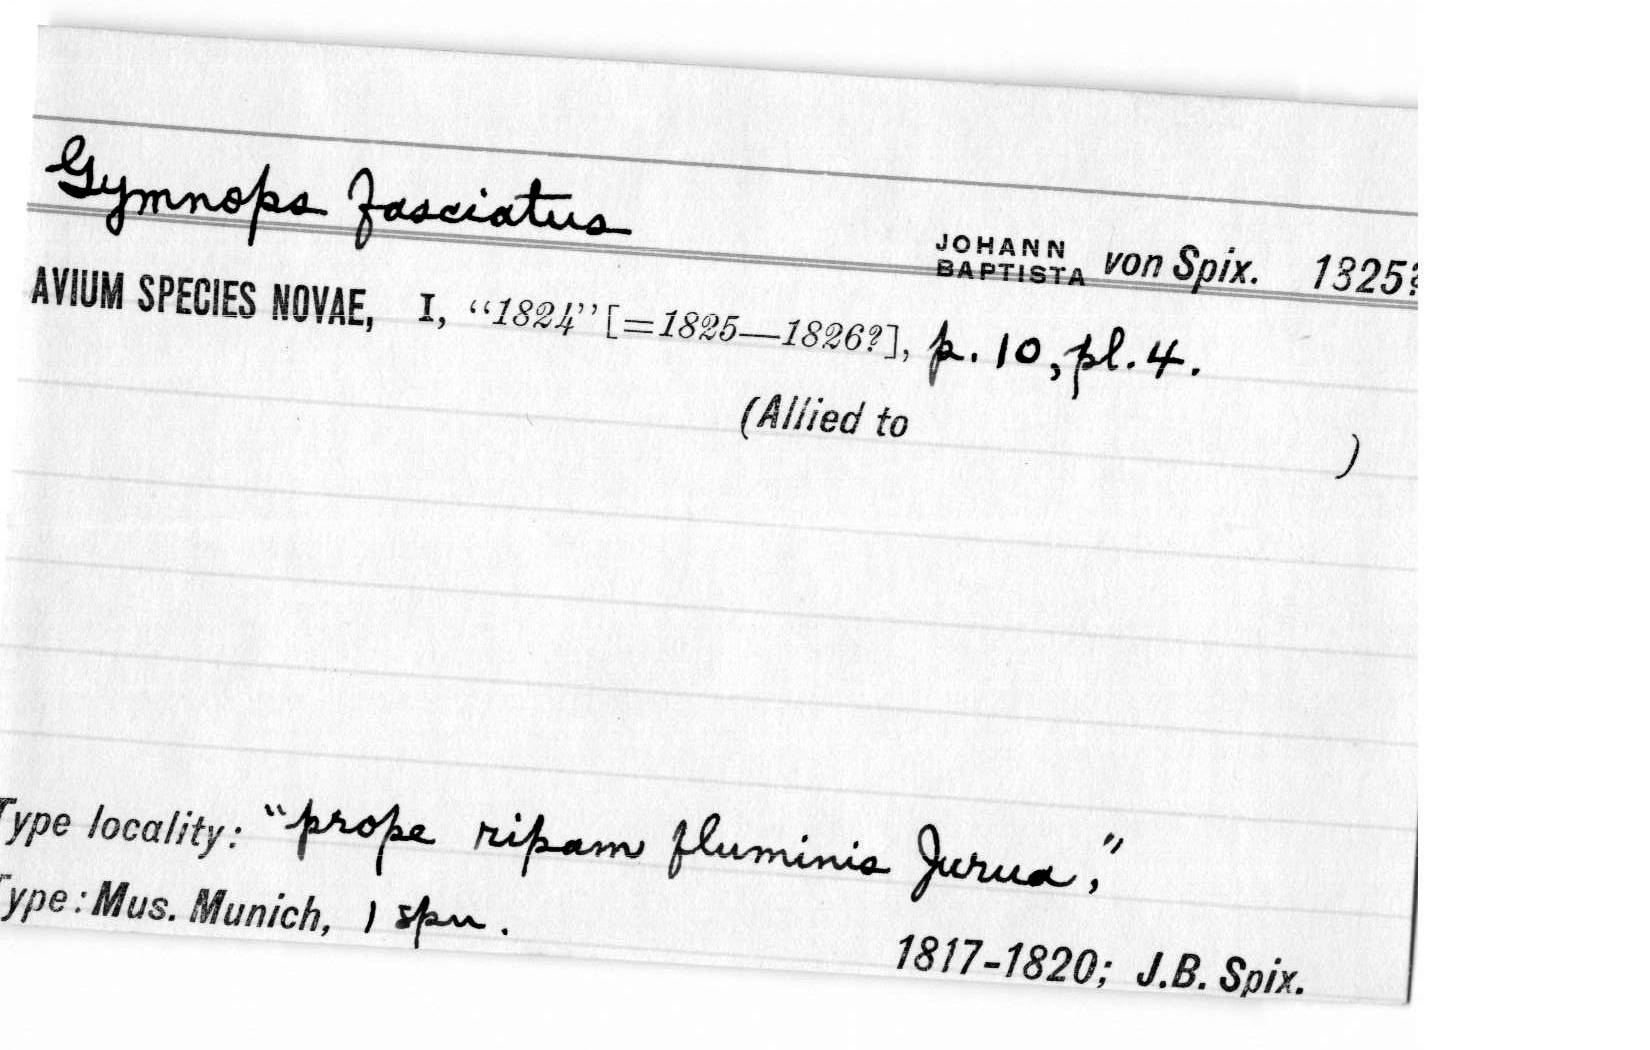 Gymnops fasciatus
JOHANN BAPTISTA von Spix. 1825?
AVIUM SPECIES NOVAE, I, "1824" [=1825—1826?], p. 10, pl. 4.
(Allied to )
Type locality: "prope ripam fluminis Jurua,"
Type: Mus. Munich, 1 spn.
1817-1820; J.B. Spix.